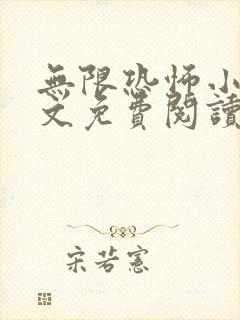 無限恐怖小
文免費閱讀
宋若憲